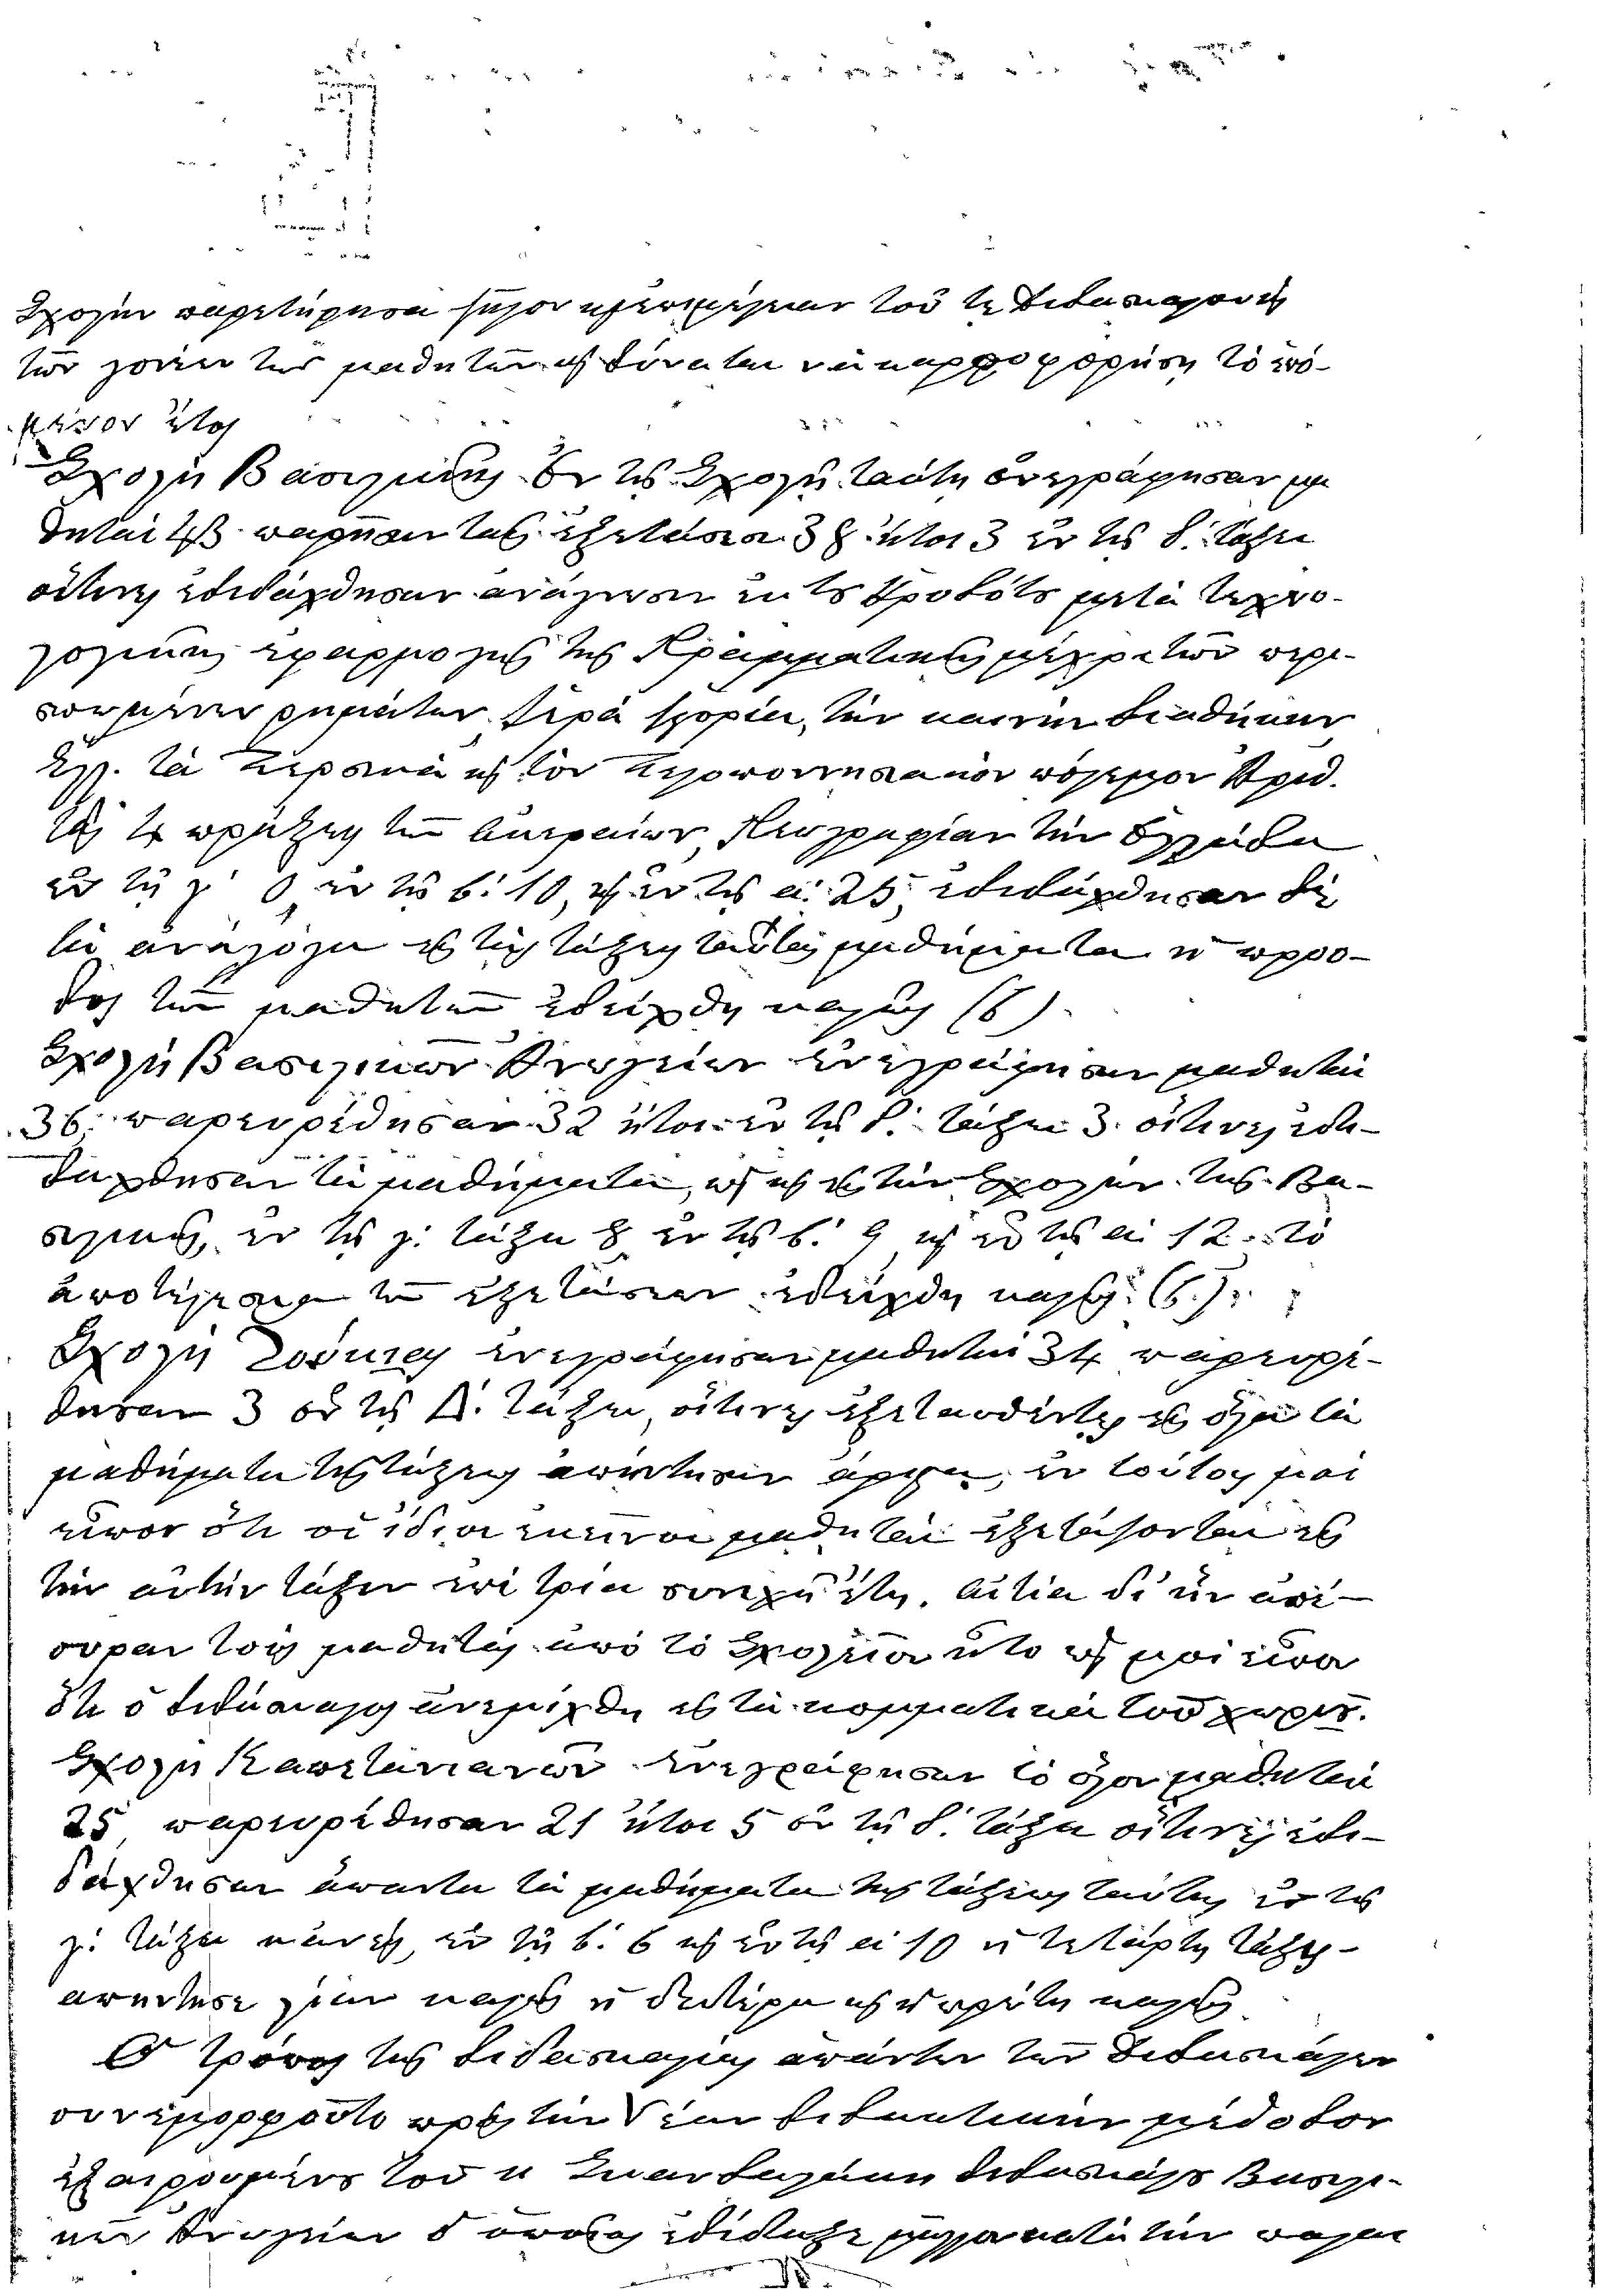 Σχολὴν παρετήρησα ζῆλον κ ἐπιμέλειαν τοῦ τε διδασκάλου κ
τῶν γονέων τῶν μαθητῶν κ δύναται νὰ καρποφορήσῃ τὸ ἑπό-
μενον ἔτος
Σχολὴ Βασιλικῆς. Ἐν τῇ Σχολῇ ταύτῃ ἐνεγράφησαν μα
θηταὶ παρῆσαν τὰς ἐξετάσεις 38 ἤτοι 3 ἐν τῇ δ΄. τάξει
οἵτινες ἐδιδάχθησαν ἀνάγνωσιν ἐκ τοῦ Ἡροδότου μετὰ τεχνο-
λογικῆς ἐφαρμογῆς τῆς Γραμματικῆς μέχρι τῶν περι-
σπωμένων ρημάτων, Ἱερὰ ἱστορία, τὴν καινὴν διαθήκην,
Ἑλλ. τὰ Περσικὰ κ τὸν Πελοποννησιακὸν πόλεμον Ἀριθ.
τὰς 4 πράξεις τῶν ἀκεραίων, Γεωγραφίαν τὴν Ἑλλάδα
ἐν τῇ γ΄ 0, ἐν τῇ β΄. 10, κ ἐν τῇ α΄. 25, ἐδιδάχθησαν δὲ
τὰ ἀνάλογα εἰς τὰς τάξεις ταύτας μαθήματα ἡ προο-
δος τῶν μαθητῶν ἐδείχθη καλῶς (6).
Σχολὴ Βασιλικῶν Ἀνωγείων ἐνεγράφησαν μαθηταὶ
36, παρευρέθησαν 32 ἤτοι ἐν τῇ δ΄. τάξει 3. οἵτινες ἐδι-
δάχθησαν τὰ μαθήματα, ὡς κ εἰς τὴν Σχολὴν τῆς Βα-
σιλικῆς, ἐν τῇ γ΄. τάξει 8, ἐν τῇ β΄. 9 κ ἐν τῇ α΄ 12. τὸ
ἀποτέλεσμα τῶν ἐξετάσεων ἐδείχθη καλῶς (6.)
Σχολὴ ἐνεγράφησαν μαθηταὶ 34 παρευρέ-
θησαν 3 ἐν τῇ Δ΄. τάξει, οἵτινες ἐξετασθέντες εἰς ὅλα τὰ
μαθήματα τῆς τάξεως ἀπήντησαν ἐν τούτοις μοὶ
εἶπον ὅτι οἱ ἴδιοι ἐκεῖνοι μαθηταὶ ἐξετάζονται εἰς
τὴν αὐτὴν τάξιν ἐπὶ τρία συνεχῆ ἔτη. Αἰτία δι᾽ ἣν ἀπέ-
συραν τοὺς μαθητὰς ἀπὸ τὸ Σχολεῖον ἦτο ὡς μοὶ εἶπον
ὅτι ὁ διδάσκαλος ἀνεμίχθη εἰς τὰ κομματικὰ τοῦ χωριοῦ.
Σχολὴ Καπετανιανῶν ἐνεγράφησαν τὸ ὅλον μαθηταὶ
25, παρευρέθησαν 21 ἤτοι 5 ἐν τῇ δ΄. τάξει οἵτινες ἐδι-
δάχθησαν ἅπαντα τὰ μαθήματα τῆς τάξεως ταύτης ἐν τῇ
γ΄. τάξει κανείς, ἐν τῇ β΄. 6 κ ἐν τῇ α΄ 10 ἡ τετάρτη τάξις
ἀπήντησε λίαν καλῶς ἡ δευτέρα κ ἡ πρώτη καλῶς.
Ὁ τρόπος τῆς διδασκαλίας ἁπάντων τῶν διδασκάλων
συνεμορφοῦτο πρὸς τὴν Νέαν διδακτικὴν μέθοδον
ἐξαιρουμένου τοῦ κ Σκανδαλάκη διδασκάλου Βασιλι-
κῶν Ἀνωγείων ὁ ὁποῖος ἐδίδαξε μᾶλλον κατὰ τὴν παλαι